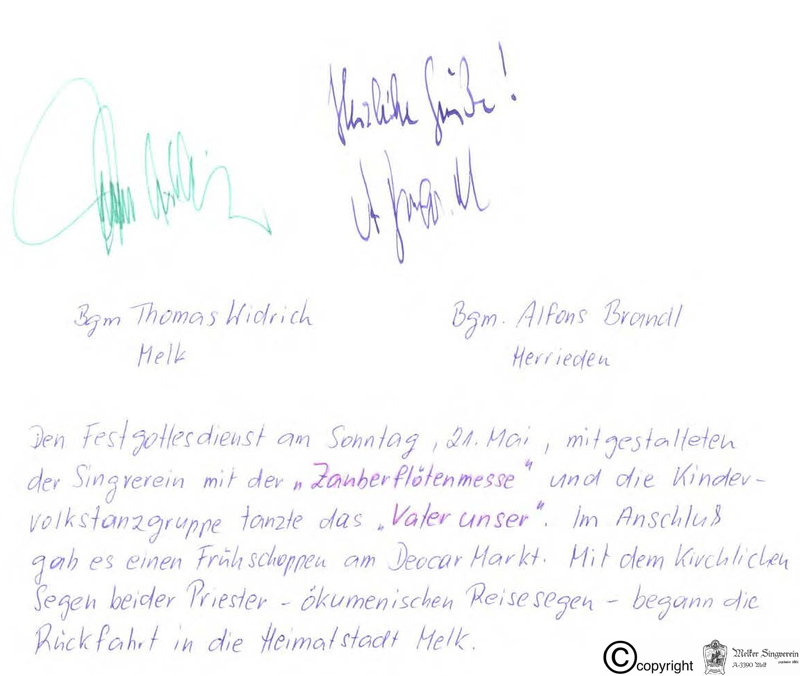 Herzliche Grüße!
Bgm Thomas Widrich
Melk
Bgm. Alfons Brandl
Herrieden
Den Festgottesdienst am Sonntag, 21. Mai, mitgestalteten
der Singverein mit der „Zauberflötenmesse" und die Kinder-
volkstanzgruppe tanzte das „Vater unser". Im Anschluß
gab es einen Frühschoppen am Deocar Markt. Mit dem Kirchlichen
Segen beider Priester - ökumenischen Reisesegen - begann die
Rückfahrt in die Heimatstadt Melk.
©copyright
Melker Singverein
A-3390 Melk